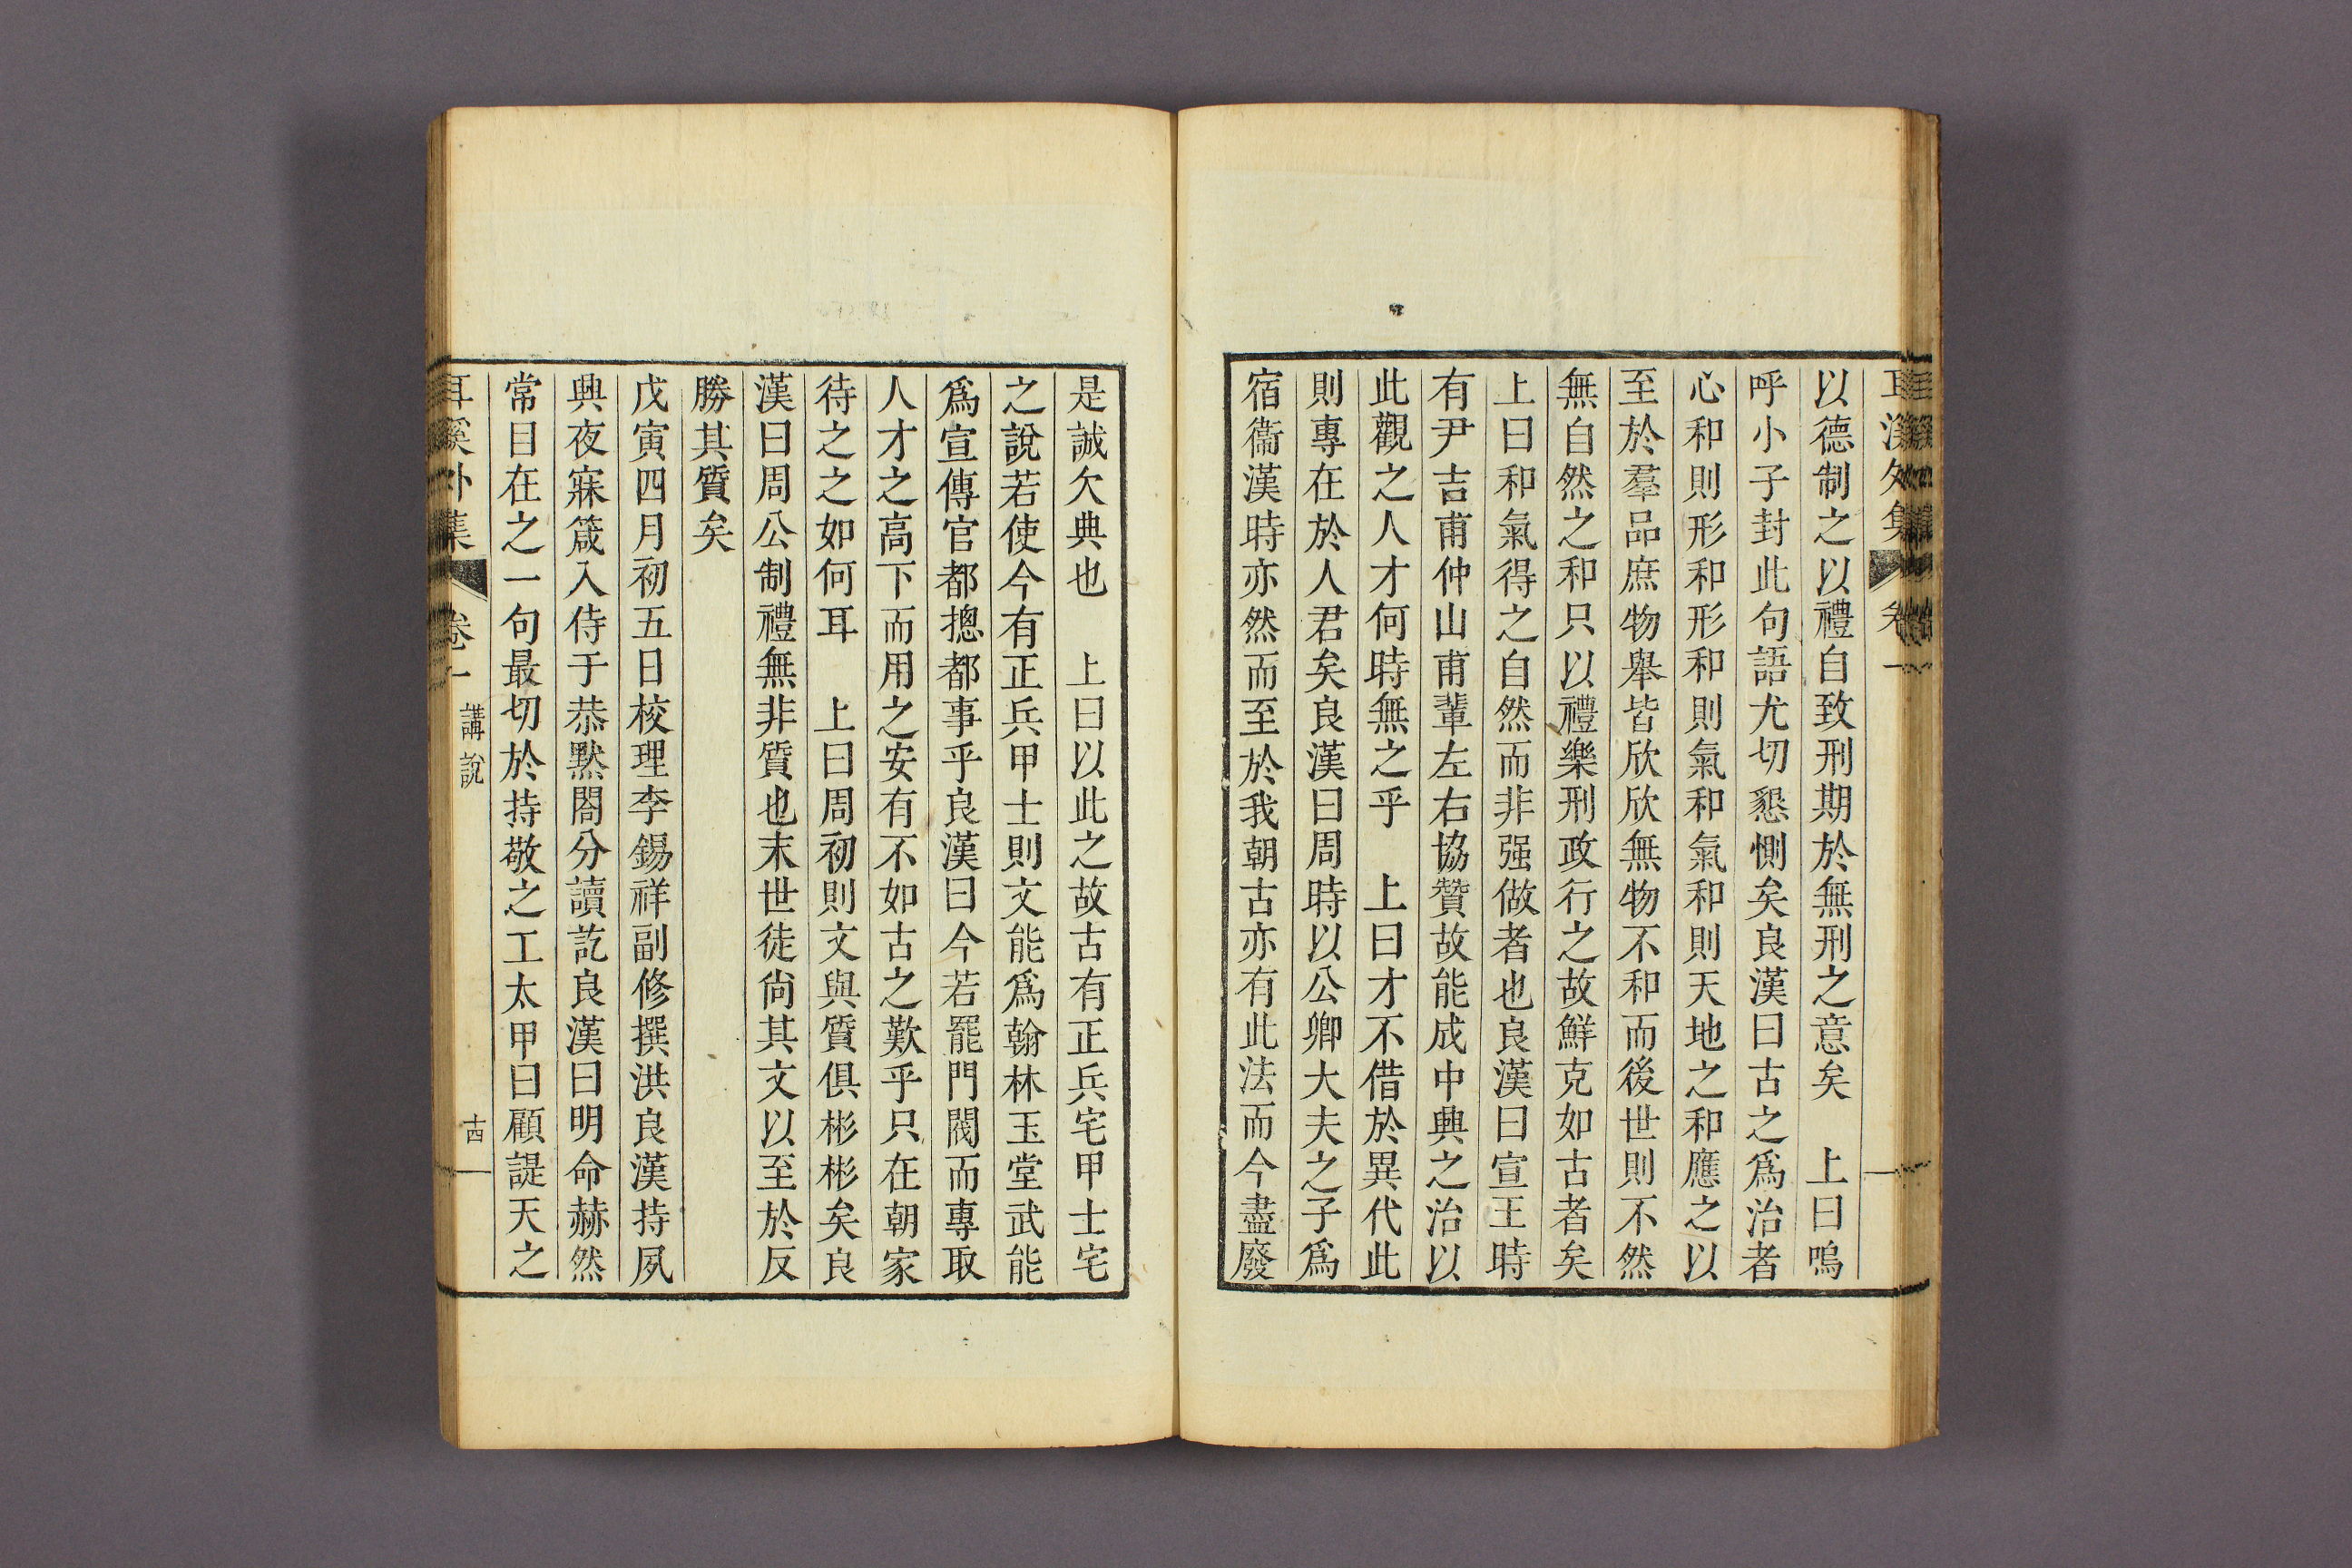 以德制之以禮自致刑期於無刑之意矣　上曰嗚
呼小子封此句語尤切懇惻矣良漢曰古之爲治者
心和則形和形和則氣和氣和則天地之和應之以
至於羣品庶物舉皆欣欣無物不和而後世則不然
無自然之和只以禮樂刑政行之故鮮克如古者矣
上曰和氣得之自然而非强做者也良漢曰宣王時
有尹吉甫仲山甫輩左右協贊故能成中興之治以
此觀之人才何時無之乎　上曰才不借於異代此
則專在於人君矣良漢曰周時以公卿大夫之子爲
宿衞漢時亦然而至於我朝古亦有此法而今盡廢
是誠欠典也　上曰以此之故古有正兵宅甲士宅
之說若使今有正兵甲士則文能爲翰林玉堂武能
爲宣傳官都摠都事乎良漢曰今若罷門閥而專取
人才之高下而用之安有不如古之歎乎只在朝家
待之之如何耳　上曰周初則文與質俱彬彬矣良
漢曰周公制禮無非質也末世徒尙其文以至於反
勝其質矣
戊寅四月初五日校理李錫祥副修撰洪良漢持夙
興夜寐箴入侍于恭默閤分讀訖良漢曰明命赫然
常目在之一句最切於持敬之工太甲曰顧諟天之
耳溪外集
卷十
講說
十四